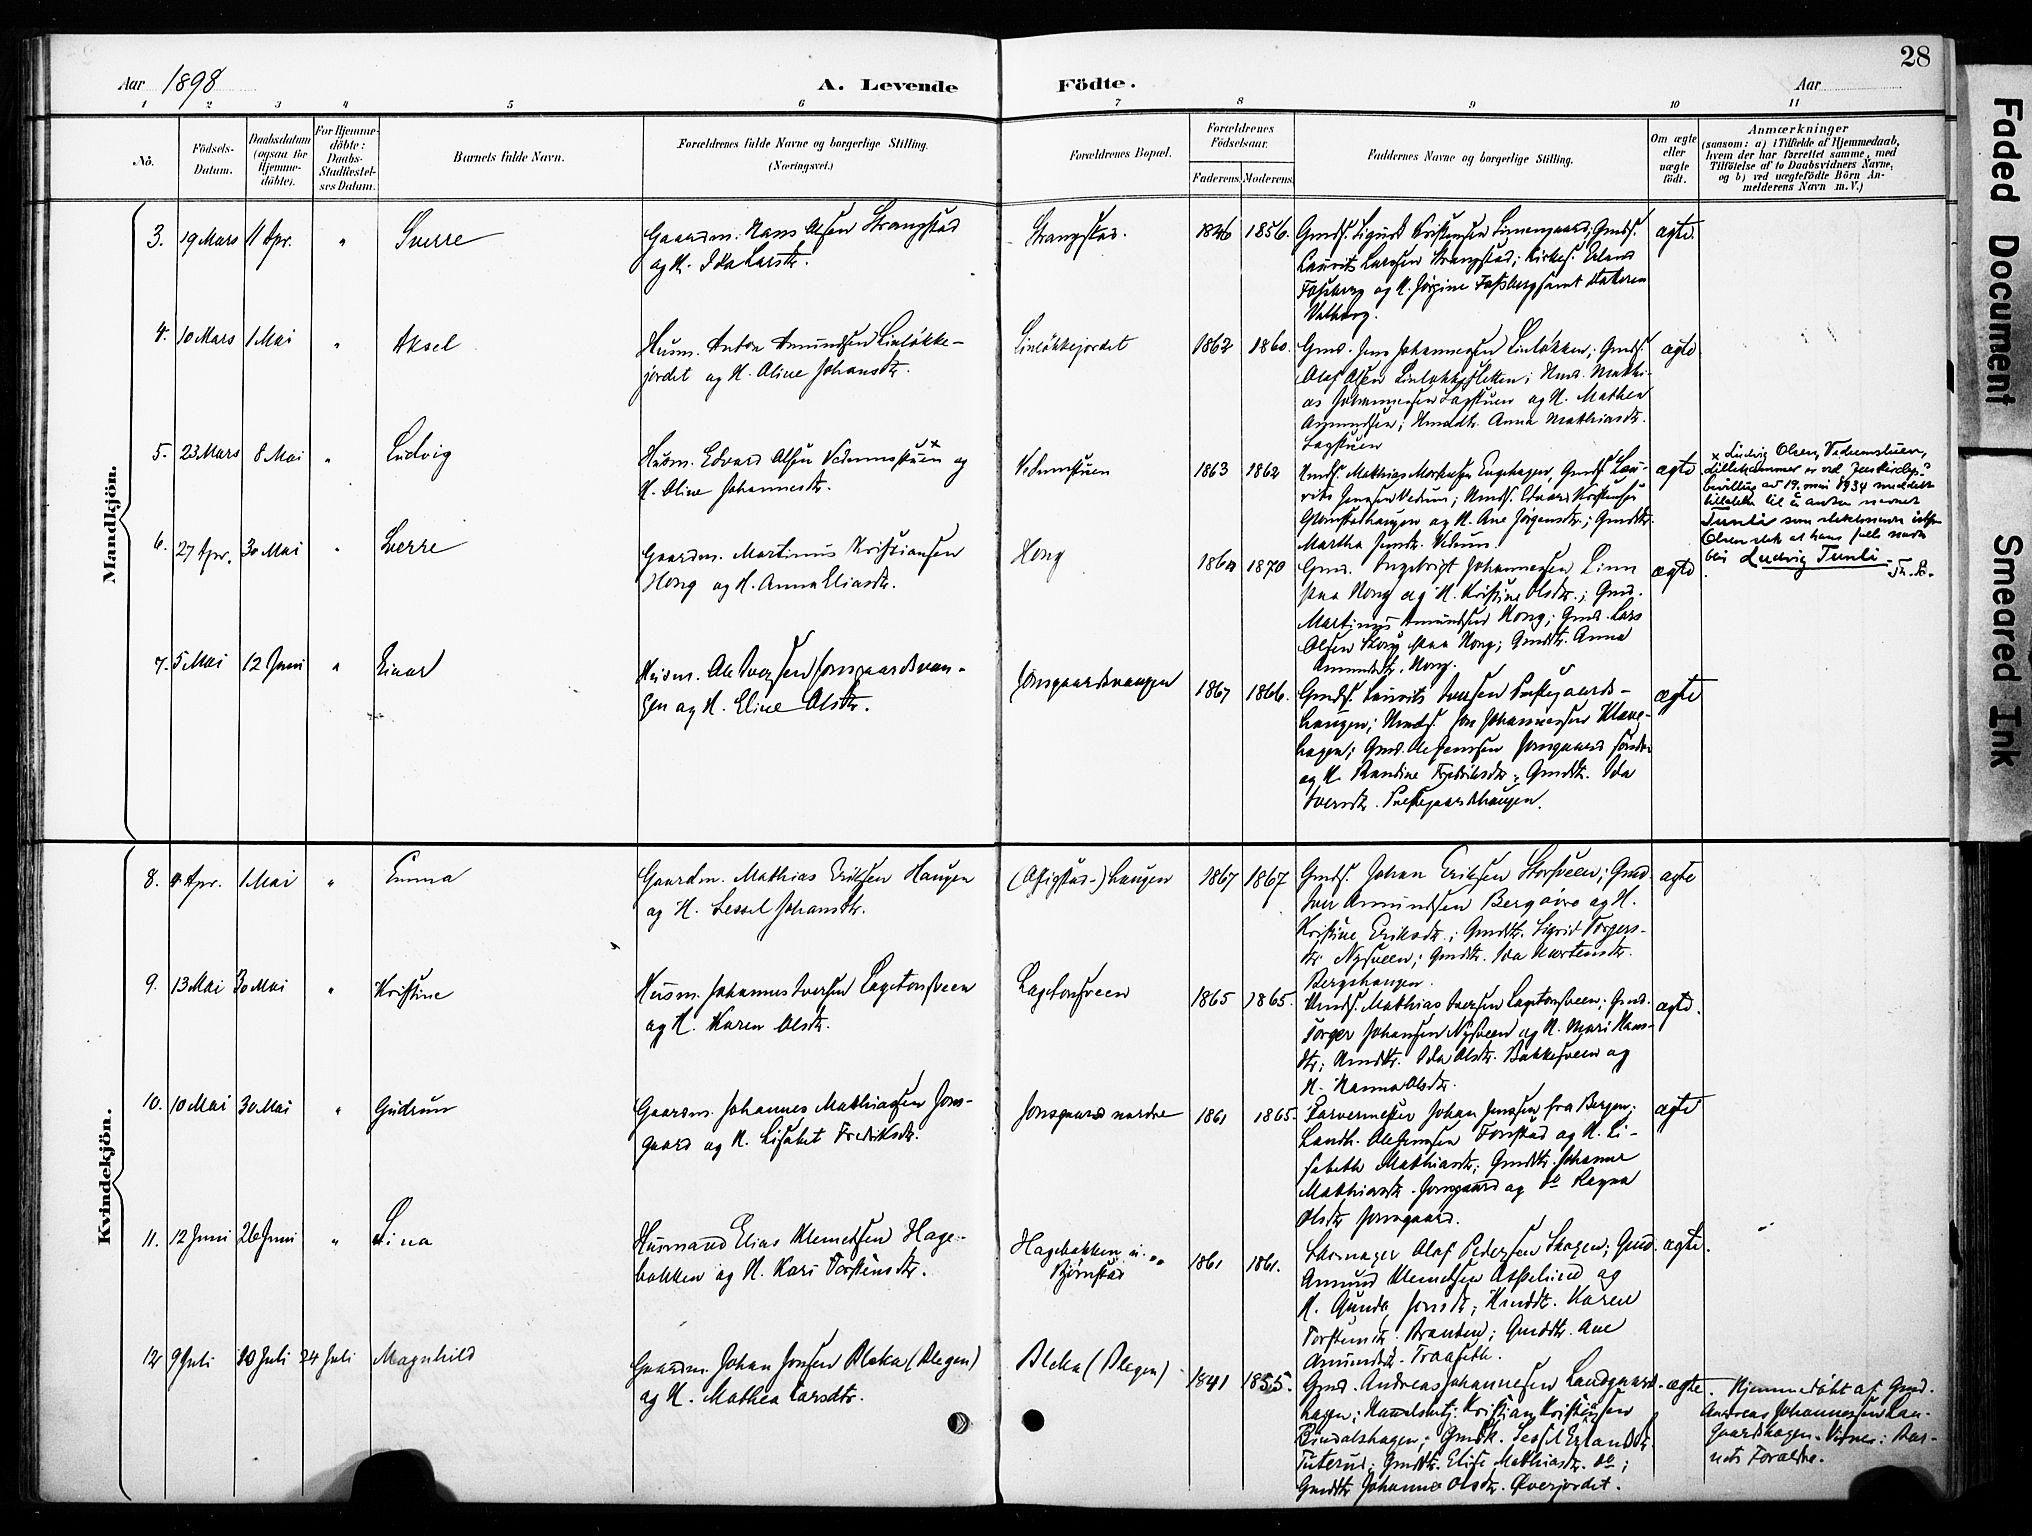 28
Aar 1898 A. Levende Födte. Aar
1 2 3 4 5 6 7 8 9 10 11
No.
Födsels-Datum.
Daabsdatum (ogsaa for Hjemme-döbte).
For Hjemme-döbte: Daabs-Stadfæstel-ses Datum.
Barnets fulde Navn.
Forældrenes fulde Navne og borgerlige Stilling.
(Næringsvei.)
Forældrenes Bopæl.
Forældrenes Födselsaar.
Faderens. Moderens.
Faddernes Navne og borgerlige Stilling.
Om ægte eller uægte födt.
Anmærkninger
(saasom: a) i Tilfælde af Hjemmedaab,
hvem der har forrettet samme, med
Tilföielse af to Daabsvidners Navne,
og b) ved uægtefödte Börn An-
melderens Navn m. V.)
Mandkjön.
3. 19 Mars 11 Apr. " Sverre
Gaardm. Hans Olsen Strangstad
og H. Ida Larsdtr.
Strangstad.
1846 1856.
Gmds. Sigurd Kristensen Linnengaard; Gmds.
Laurits Larssen Strangstad; Kirkes. Erland
Fossberg og H. Jørgine Fossberg samt Moderen
ægte.
4. 10 Mars 1 Mai " Aksel
Husm. Anton Amundsen Linløkke-
jordet og H. Oline Johansdtr.
Linløkkejordet
1862 1860.
Gmd. Jens Johannessen Linløkken; Gmds.
Olaf Olsen Linløkksletten; Hmd. Mathi-
as Johannessen Lagstuen og H. Mathea
Amundsen; Hmddtr. Anna Mathiasdtr.
Lagstuen
ægte
5. 23 Mars 8 Mai " Ludvig
Husm. Edvard Olsen Vedumsstuen x og
H. Oline Johannesdtr.
Vedumstuen
1863 1862
Hmds. Mathias Mortensen Engehagen; Gmds. Lau-
rits Jenssen Vedum; Hmds. Edvard Kristensen
Glomstadhaugen og H. Ane Jørgensdtr.; Gmddtr.
Martha Jensdtr. Vedum.
ægte
x Ludvig Olsen, Vedumstuen,
Lillehammer er ved Justisdep.s
bevilling av 19. mai 1934 meddelt
tillatelse til å anta navnet
Tunli som slektsnavn istf.
Olsen slik at hans fulle navn
blir Ludvig Tunli.
6. 27 Apr. 30 Mai " Sverre
Gaardm. Martinus Kristiansen
Hong og H. Anna Eliasdtr.
Hong
1864 1870
Gmd. Ingebrigt Johannessen Linn
paa Hong og H. Kristine Olsdtr.; Gmd.
Martinus Amundsen Hong; Gmd. Lars
Olsen Skog paa Hong; Gmddtr. Anna
Amundsdtr. Hong.
ægte
7. 5 Mai 12 Juni " Einar
Husm. Ole Iversen Jonsgaardsvan-
gen og H. Eline Olsdtr.
Jonsgaardsvangen
1867 1866.
Gmds. Laurits Iversen Prestgaards-
haugen; Hmds. Jon Johannessen Klove-
hagen; Gmd. Ole Jenssen Jonsgaard søndre
og H. Randine Fredriksdtr.; Gmddtr. Ida
Iversdtr. Prestgaardshaugen.
ægte
Kvindekjön.
8. 4 Apr. 1 Mai " Emma
Gaardm. Mathias Eriksen Haugen
og H. Sessel Johansdtr.
(Afigstad-) haugen
1867 1867
Gmds. Johan Eriksen Storsveen; Gmd.
Iver Amundsen Bergsøiro og H.
Kristine Eriksdtr.; Gmddtr. Sigrid Torgers-
dtr. Nysveen; Gmddtr. Ida Martensdtr.
Bergshaugen.
ægte
9. 13 Mai 30 Mai " Kristine
Husm. Johannes Iversen Lagetonsveen
og H. Karen Olsdtr.
Lagetonsveen
1865 1865.
Hmds. Mathias Iversen Lagetonsveen; Gmd.
Torger Johansen Nysveen og H. Mari Hans-
dtr; Hmddtr. Ida Olsdtr. Bakkesveen og
H. Hanna Olsdtr.
ægte.
10. 10 Mai 30 Mai " Gudrun
Gaardm. Johannes Mathiassen Jons-
gaard og H. Lisabet Fredriksdtr.
Jonsgaard nordre
1861 1865.
Farvermester Johan Jenssen fra Bergen;
Landh. Ole Jenssen Fonstad og H. Li-
sabeth Mathiasdtr; Gmddtr. Johanne
Mathiasdtr. Jonsgaard og do Ragna
Olsdtr Jonsgaard.
ægte
11. 12 Juni 26 Juni " Lina
Husmand Elias Klemetsen Hage-
bakken og H. Kari Torstensdtr.
Hagebakken u. "
Bjørnstad
1861 1861.
Skomager Olaf Pedersen Skogen; Gmd.
Amund Klemetsen Asselund og
H. Gunda Jonsdtr; Hmddtr. Karen
Torstensdtr. Branten; Gmddtr. Ane
Amundsdtr. Traaseth.
ægte.
12 9 Juli 10 Juli 24 Juli Magnhild
Gaardm. Johan Jonsen Bleka (Blegen)
og H. Mathea Larsdtr.
Bleka (Blegen)
1841 1855.
Gmd. Andreas Johannesen Landgaard-
hagen; Handelsbetj. Kristian Kristensen
Rindalshagen; Gmdk. Sessel Erlandsdtr.
Tuterud; Gmddtr. Elise Mathiasdtr. do;
Gmddtr Johanne Olsdtr. Øverjordet.
ægte.
Hjemmedøbt af Gmd.
Andreas Johannessen Lan-
gaardshagen. Vidner: Bar-
nets Forældre.
Faded Document
Smeared Ink